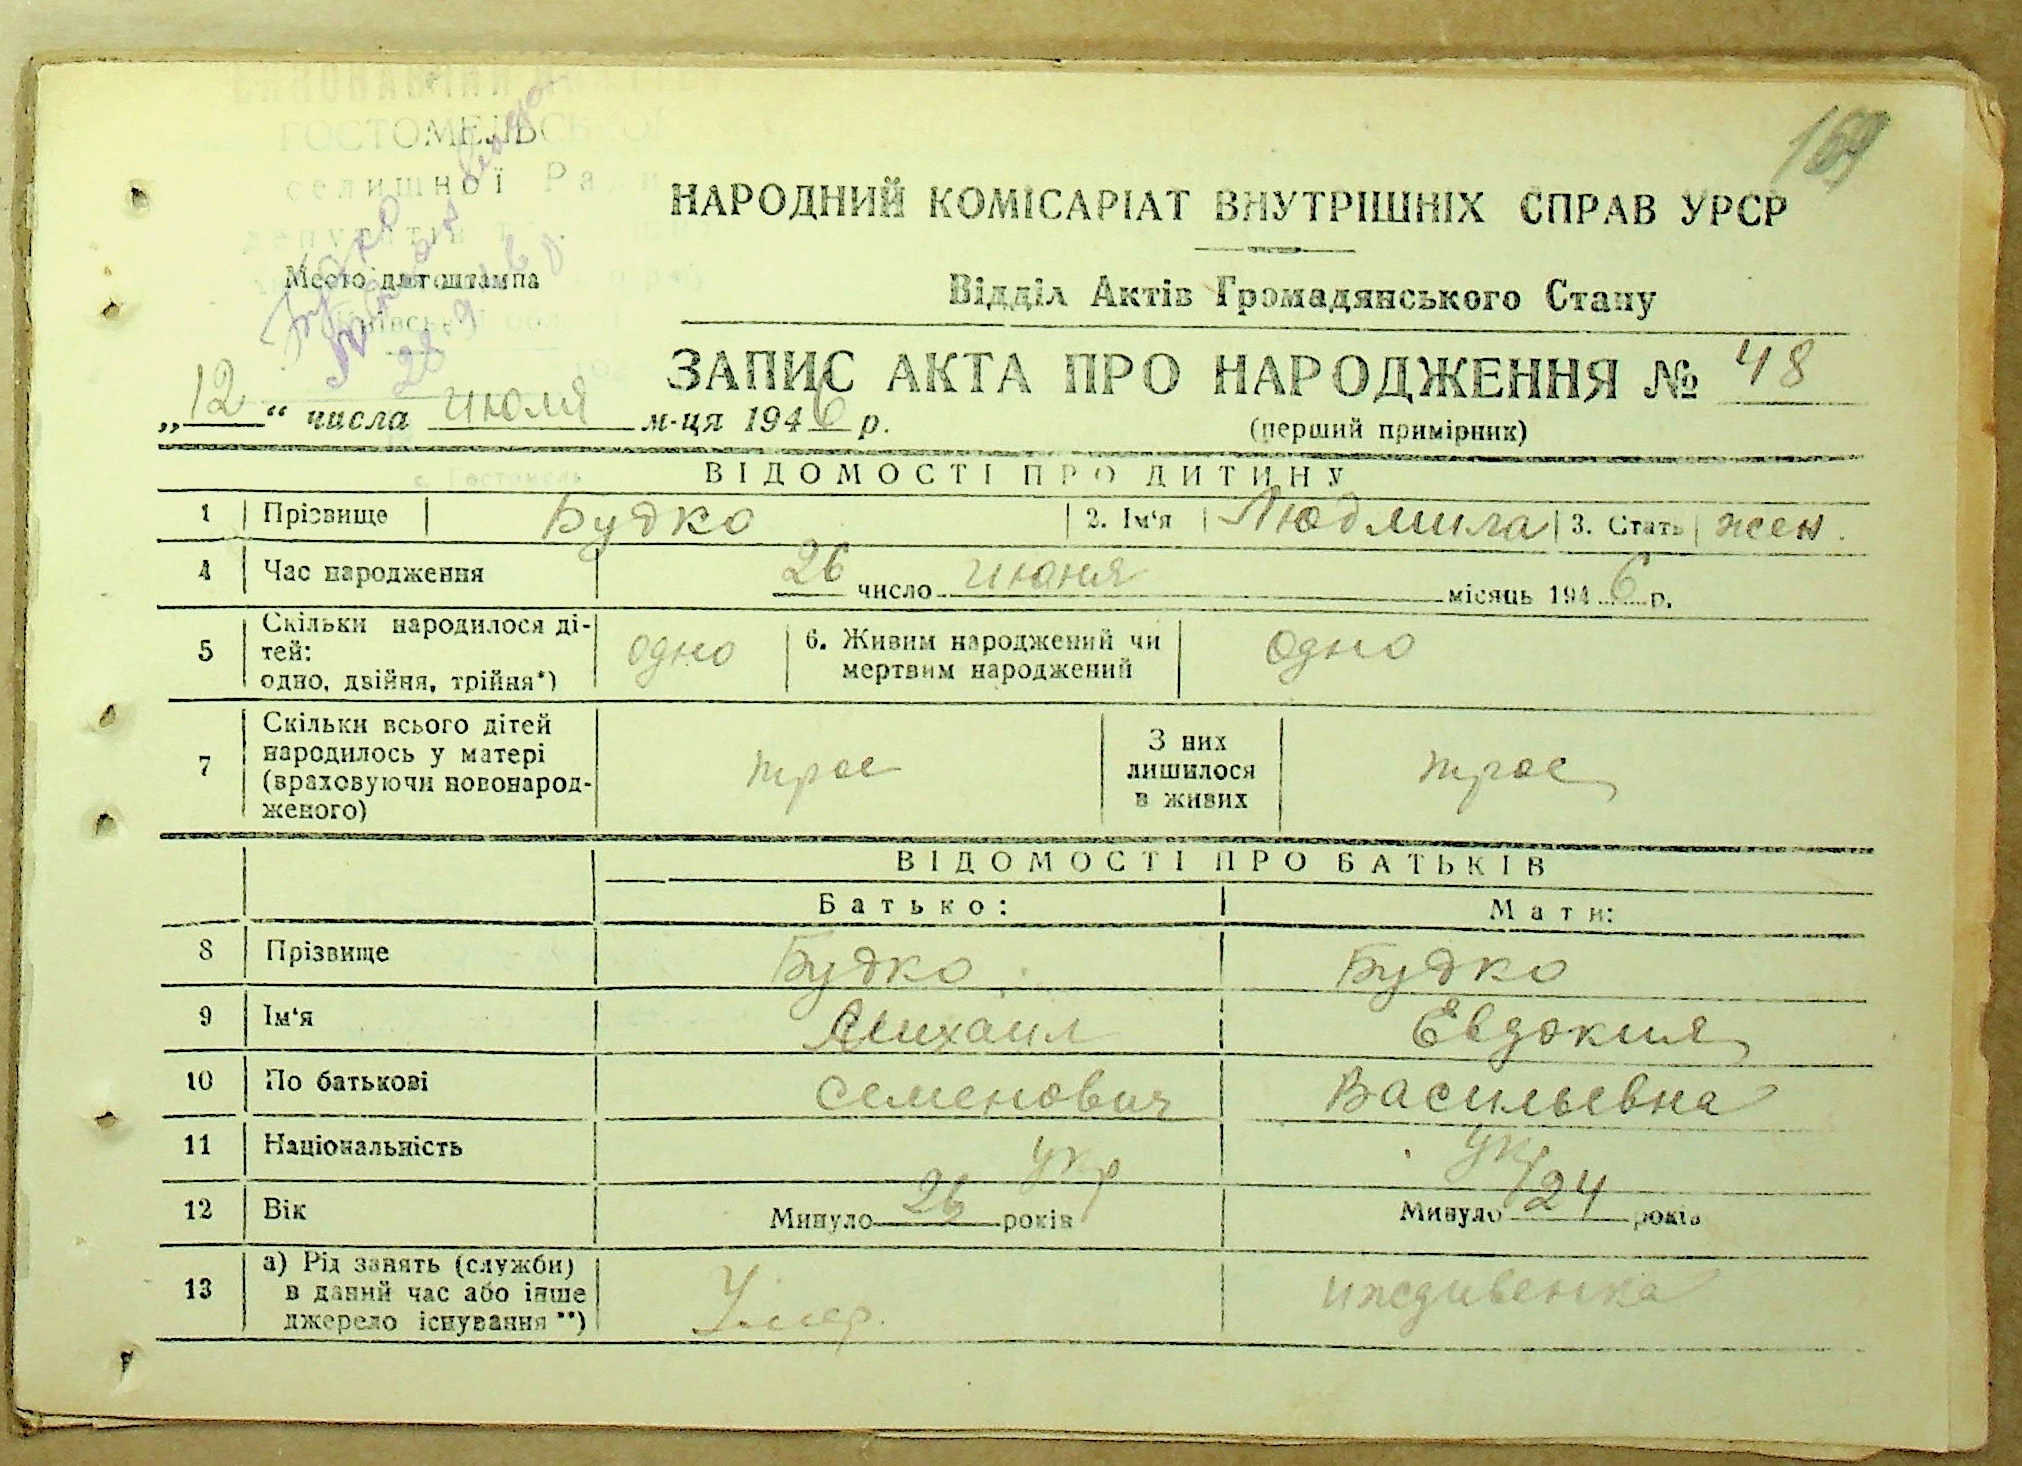 ГОСТОМЕЛЬСЬКОЇ
селищної Ради
депутатів
Место для штампа
169
НАРОДНИЙ КОМІСАРІАТ ВНУТРІШНІХ СПРАВ УРСР
Відділ Актів Громадянського Стану
ЗАПИС АКТА ПРО НАРОДЖЕННЯ № 48
„12“ числа июля м-ця 1946 р.
(перший примірник)
с. Гостомель
ВІДОМОСТІ ПРО ДИТИНУ
1 Прізвище Будко 2. Ім'я Людмила 3. Стать жен.
4 Час народження 26 число июня місяць 1946 р.
5 Скільки народилося ді-
тей:
одно, двійня, трійня*) одно 6. Живим народжений чи
мертвим народжений одно
7 Скільки всього дітей
народилось у матері
(враховуючи новонарод-
женого) трое З них
лишилося
в живих трое
ВІДОМОСТІ ПРО БАТЬКІВ
Батько: Мати:
8 Прізвище Будко Будко
9 Ім'я Михаил Евдокия
10 По батькові Семенович Васильевна
11 Національність укр укр
12 Вік Минуло 26 років Минуло 24 років
13 а) Рід занять (служби)
в даний час або інше
джерело існування **) Умер. иждивенка